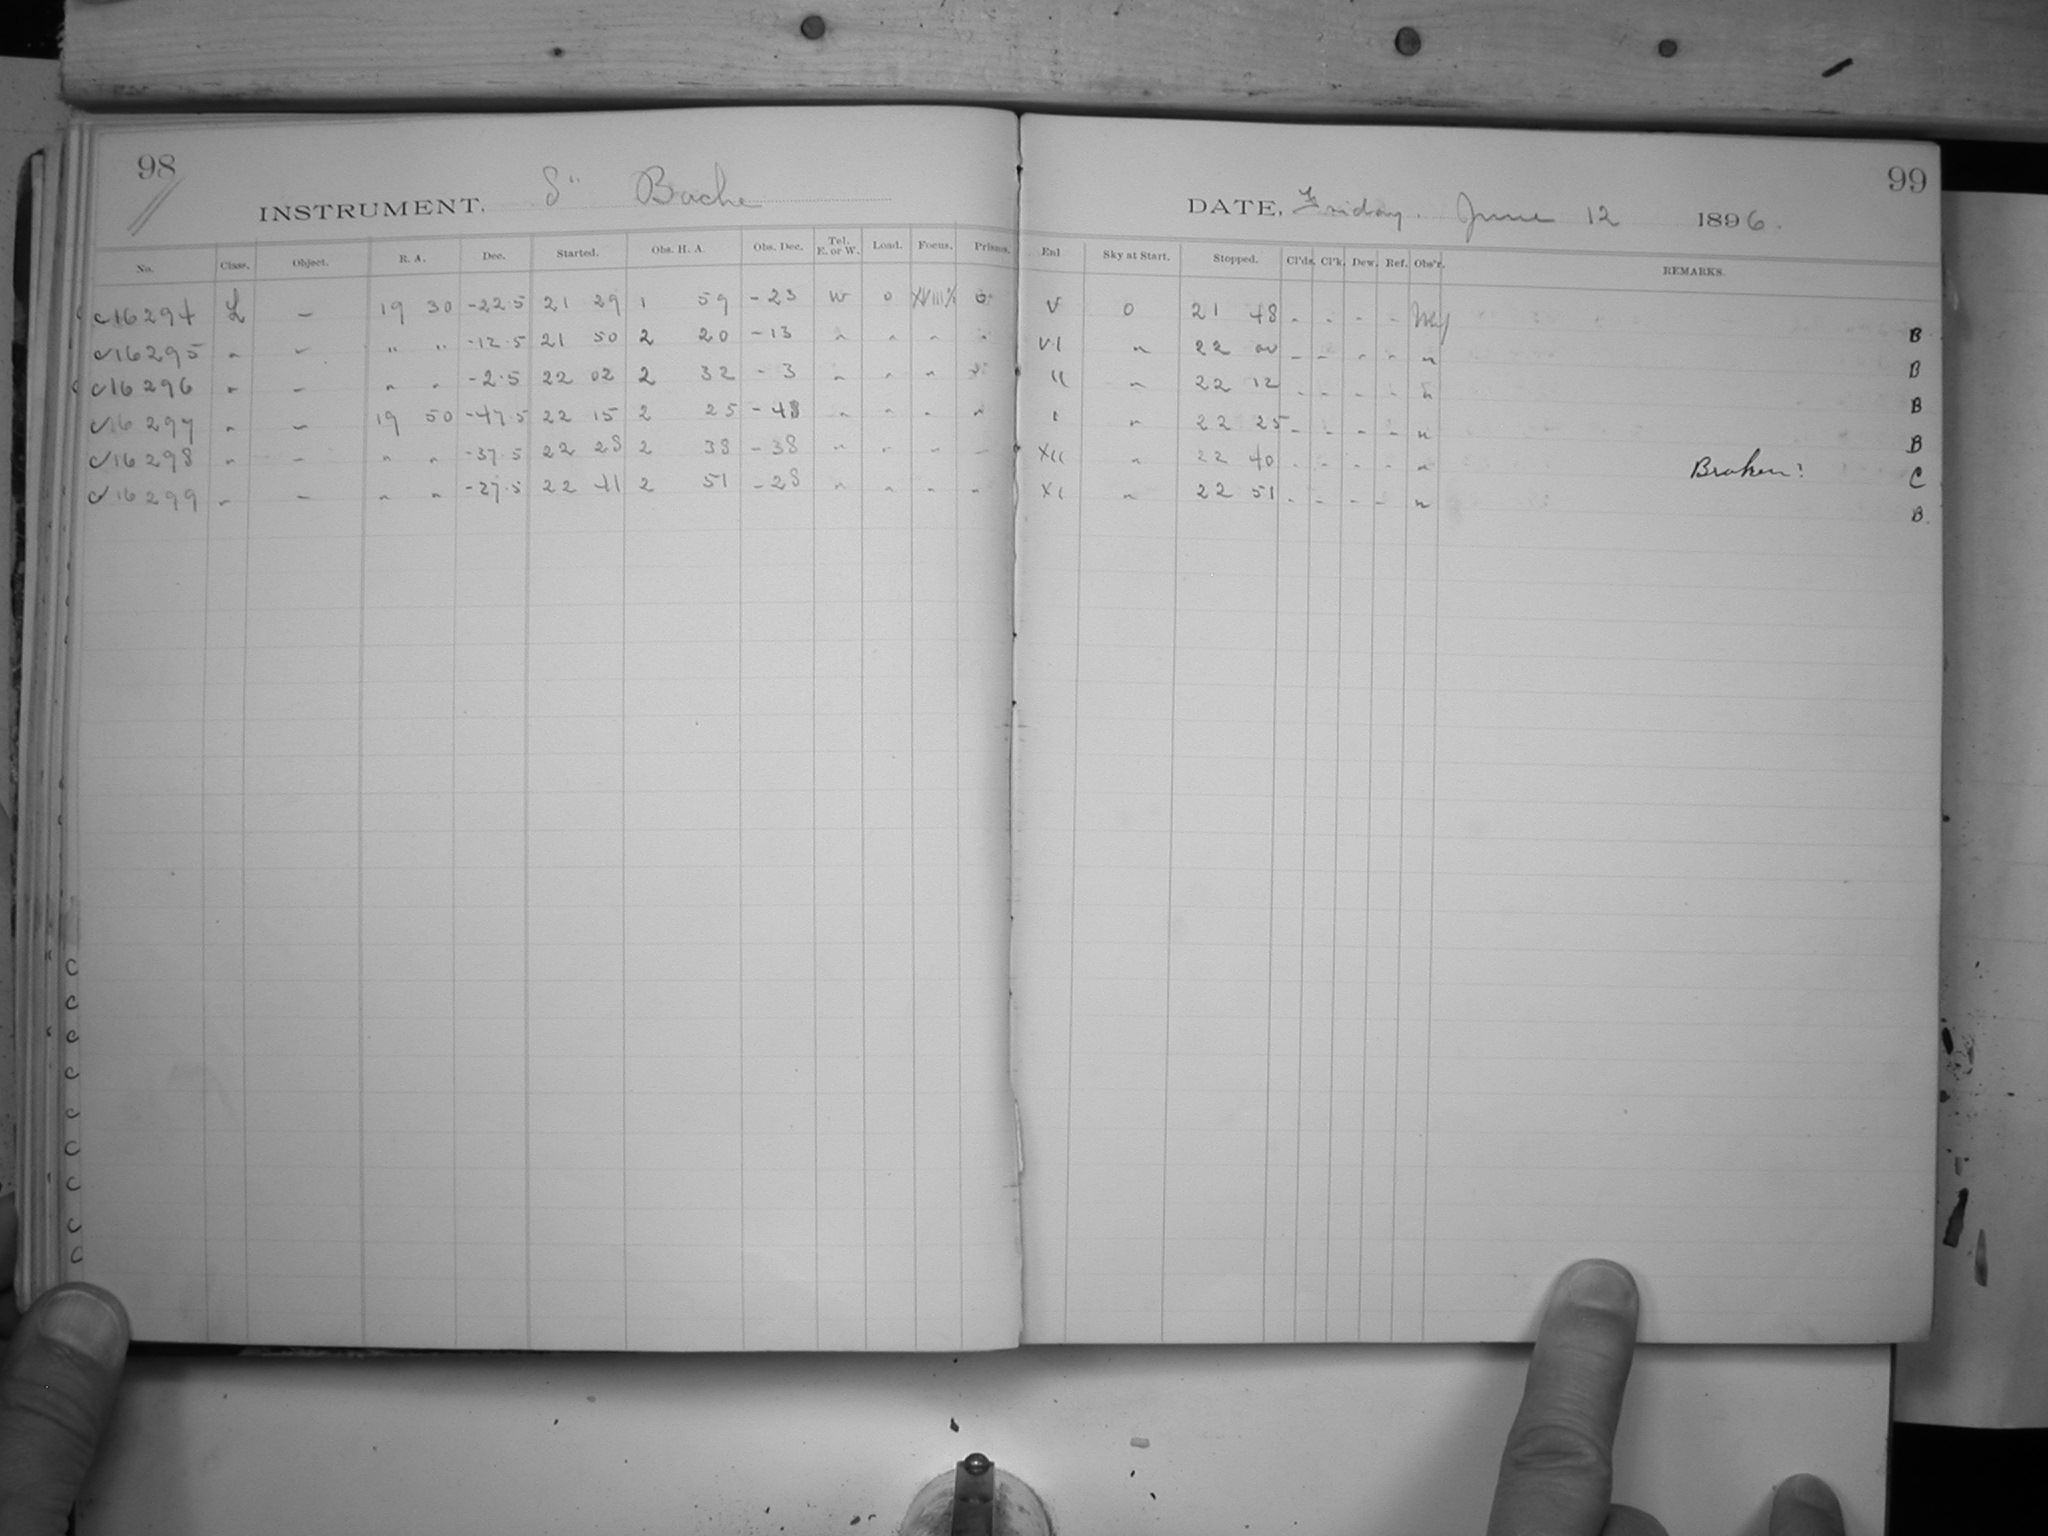 98
INSTRUMENT. 8" Bache
No. Class. Object. R. A. Dec. Started. Obs. H. A. Obs. Dec. Tel. E. or W. Load. Focus. Prisms.
c16294 L – 19 30 -22.5 21 29 1 59 -23 W 0 0
c16295 " – " " -12.5 21 50 2 20 -13 " " " "
c16296 " – " " -2.5 22 02 2 32 -3 " " "
c16297 " – 19 50 -47.5 22 15 2 25 -48 " " " "
c16298 " – " " -37.5 22 28 2 38 -38 " " " "
c16299 " – " " -27.5 22 41 2 51 -28 " " " "
99
DATE, Friday. June 12 1896.
Enl Sky at Start. Stopped. Cl'ds. Cl'k. Dew. Ref. Obs'r. REMARKS.
V 0 21 48 - - - - B
VI " 22 00 - - - - " B
" " 22 12 - - - - " B
I " 22 25 - - - - " B
XII " 22 40 - - - - " Broken! C
XI " 22 51 - - - - " B.
C
C
C
C
C
C
C
C
C